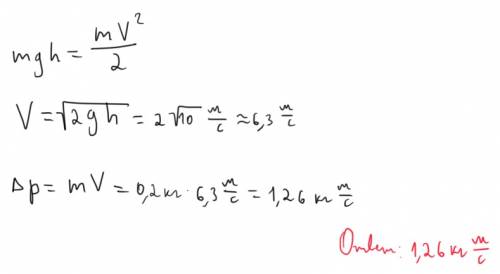 mgh = mV²/2
V = √2gh = 2√10 м/с ≈ 6,3 м/с
Δp = mV = 0,2 кг · 6,3 м/с = 1,26 кг м/с
Ответ: 1,26 кг м/с